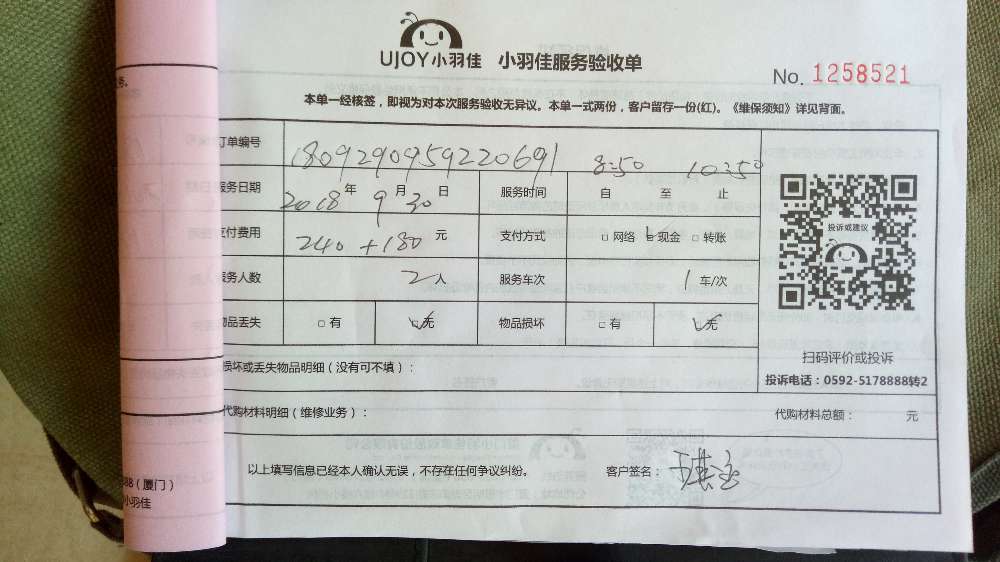 UJOY小羽佳 小羽佳服务验收单
No. 1258521
本单一经核签，即视为对本次服务验收无异议。本单一式两份，客户留存一份(红)。《维保须知》详见背面。
订单编号 1809290959220691 8:50 10:50
服务日期 2018年9月30日 服务时间 自 至 止
支付费用 240+180元 支付方式 □网络 ☑现金 □转账
服务人数 2人 服务车次 1车/次
物品丢失 □有 ☑无 物品损坏 □有 ☑无
投诉或建议
扫码评价或投诉
损坏或丢失物品明细（没有可不填）：
投诉电话：0592-5178888转2
代购材料明细（维修业务）： 代购材料总额： 元
以上填写信息已经本人确认无误，不存在任何争议纠纷。 客户签名：
88（厦门）
小羽佳